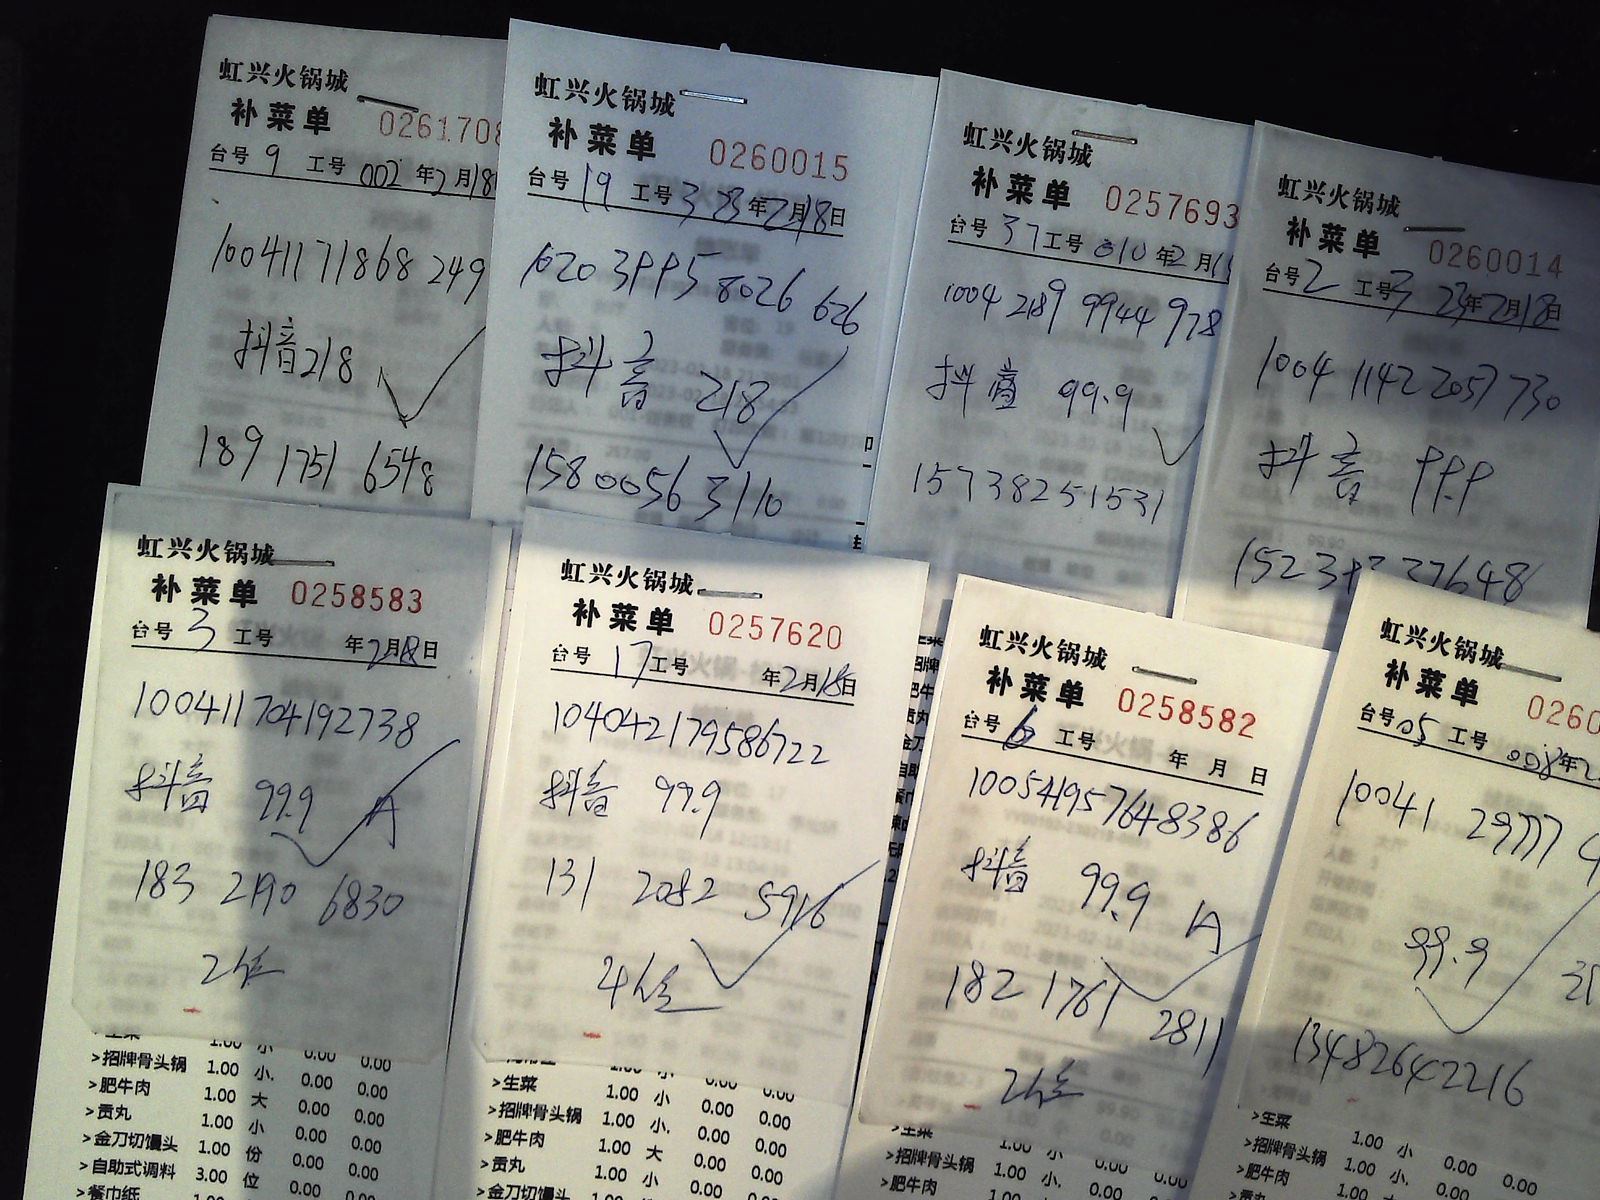 虹兴火锅城
补菜单 026170
台号 9 工号 002 年2月18
10041171868 249
抖音218
189 1751 6548
虹兴火锅城
补菜单 0260015
台号 19 工号 3 23年2月18日
10203995 8026 626
抖音 218
158 0056 3110
虹兴火锅城
补菜单 0257693
台号 37 工号 010 年2月1
1004 2189 9944 978
抖音 99.9
15738251531
虹兴火锅城
补菜单 0260014
台号 2 工号3 23年2月18日
1004 1142 2057 730
抖音 99.9
虹兴火锅城
补菜单 0258583
台号 3 工号 年2月18日
100411704192738
抖音 99.9 A
183 2190 6830
2位
虹兴火锅城
补菜单 0257620
台号 17 工号 年2月18日
104042179586722
抖音 99.9
131 2082 5916
4位
虹兴火锅城
补菜单 0258582
台号 6 工号 年 月 日
100541957648386
抖音 99.9 A
182 1761 2811
2位
虹兴火锅城
补菜单 0260
台号 05 工号 008年2
10041 29777
99.9
13482642216
>生菜 1.00 小 0.00 0.00
>招牌骨头锅 1.00 小. 0.00 0.00
>肥牛肉 1.00 大 0.00 0.00
>贡丸 1.00 小 0.00 0.00
>金刀切馒头 1.00 份 0.00 0.00
>自助式调料 3.00 位 0.00 0.00
>餐巾纸
>生菜 1.00 小 0.00 0.00
>招牌骨头锅 1.00 小. 0.00 0.00
>肥牛肉 1.00 大 0.00 0.00
>贡丸 1.00 小 0.00 0.00
>金刀切馒头 1.00
>生菜 1.00 小 0.00 0.00
>招牌骨头锅 1.00 小. 0.00
>肥牛肉 1.00
>生菜 1.00 小 0.00
>招牌骨头锅 1.00 小. 0.00
>肥牛肉 1.00